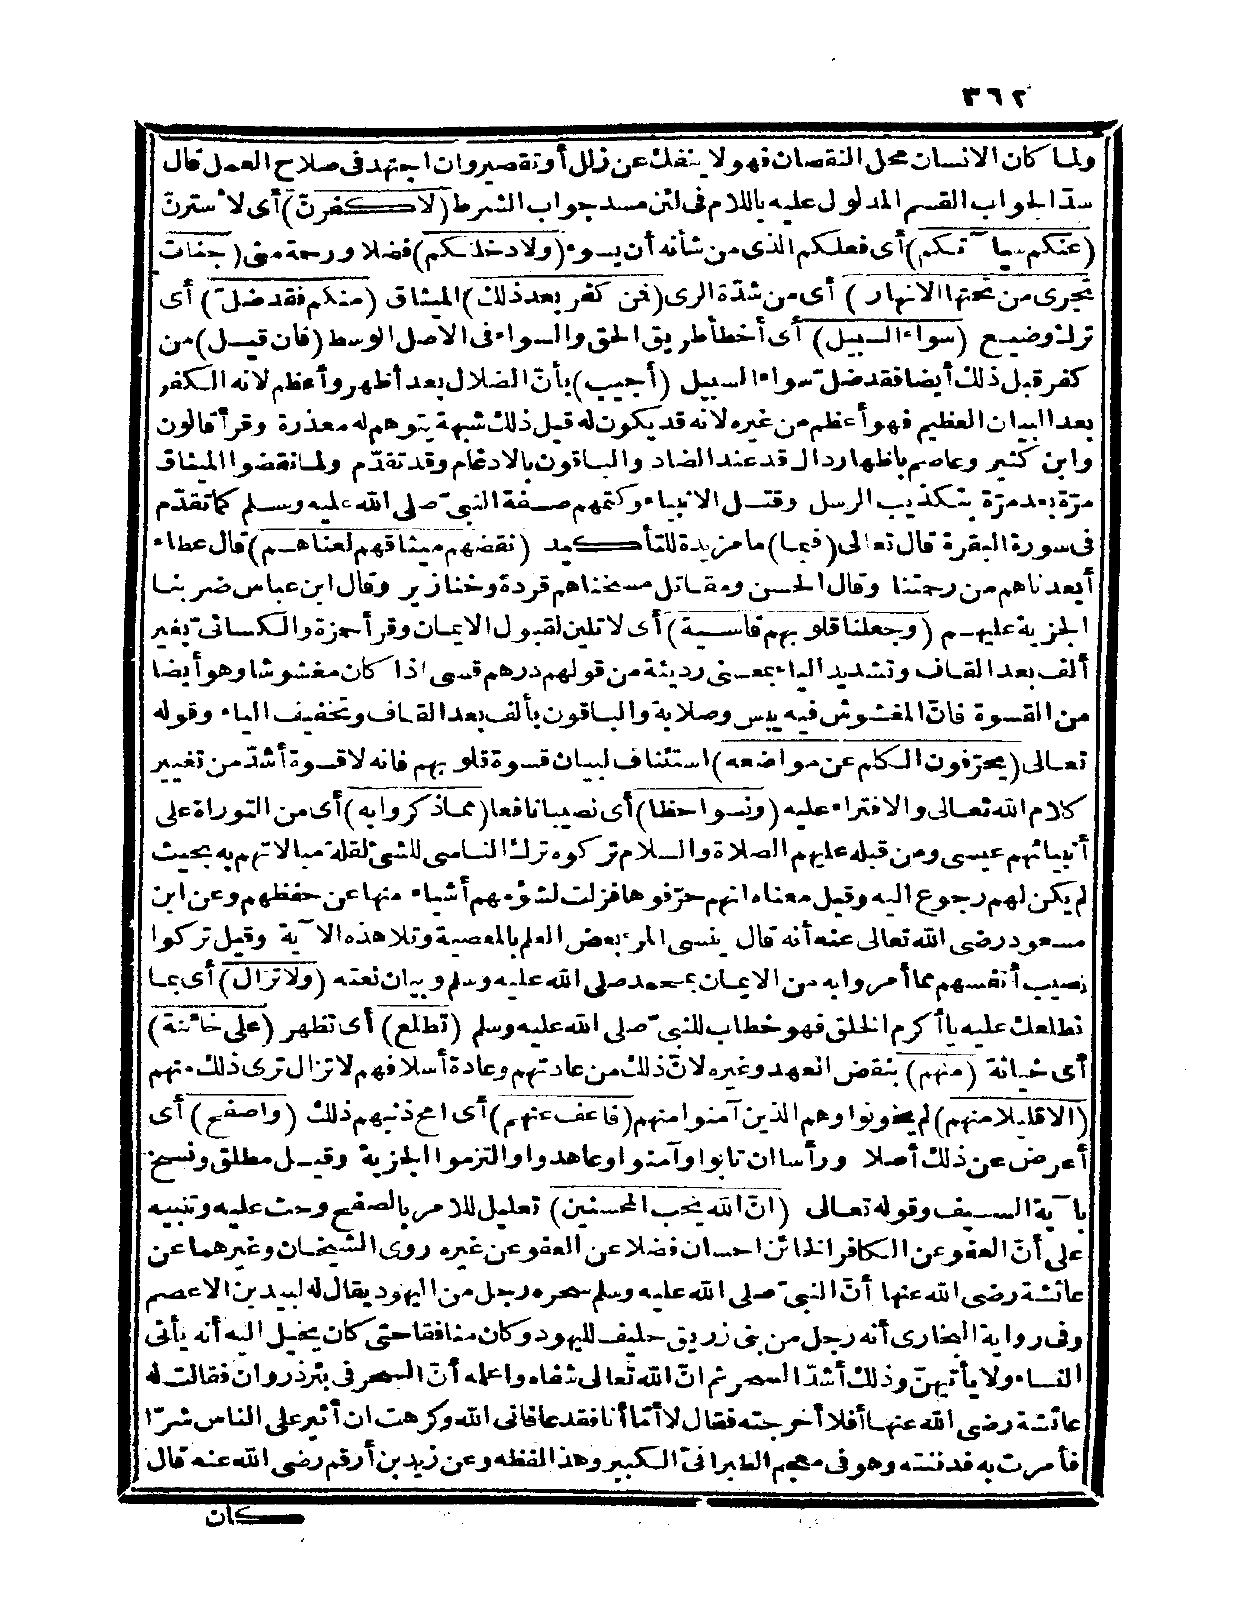 ٣٦٢
ولما كان الانسان محل النقصان فهو لا ينفك عن زلل أو تقصير وان اجتهد فى صلاح العمل قال
سدّ الجواب القسم المدلول عليه باللام فى لئن مسد جواب الشرط (لاكفرنّ) أى لاسترنّ
(عنكم سيآتكم) أى فعلكم الذى من شأنه أن يسوء (ولادخلنكم) فضلا ورحمة منى (جنات
تجرى من تحتها الانهار) أى من شدّة الرى (فمن كفر بعد ذلك) الميثاق (منكم فقد ضلّ) أى
ترك وضيع (سواء السبيل) أى أخطأ طريق الحق والسواء فى الاصل الوسط (فان قيل) من
كفر قبل ذلك أيضا فقد ضلّ سواء السبيل (أجيب) بأنّ الضلال بعد أظهر وأعظم لانه الكفر
بعد البيان العظيم فهو أعظم من غيره لانه قد يكون له قبل ذلك شبهة يتوهم له معذرة وقرأ قالون
وابن كثير وعاصم باظهار دال قد عند الضاد والباقون بالادغام وقد تقدّم ولما نقضوا الميثاق
مرّة بعد مرّة بتكذيب الرسل وقتل الانبياء وكتمهم صفة النبىّ صلى الله عليه وسلم كما تقدّم
فى سورة البقرة قال تعالى (فبما) ما مزيدة للتأكيد (نقضهم ميثاقهم لعناهم) قال عطاء
أبعدناهم من رحمتنا وقال الحسن ومقاتل مسخناهم قردة وخنازير وقال ابن عباس ضربنا
الجزية عليهم (وجعلنا قلوبهم قاسية) أى لا تلين لقبول الايمان وقرأ حمزة والكسائىّ بغير
ألف بعد القاف وتشديد الياء بمعنى رديئة من قولهم درهم قسى اذا كان مغشوشا وهو أيضا
من القسوة فانّ المغشوش فيه يبس وصلابة والباقون بألف بعد القاف وتخفيف الياء وقوله
تعالى (يحرّفون الكلم عن مواضعه) استئناف لبيان قسوة قلوبهم فانه لا قسوة أشدّ من تغيير
كلام الله تعالى والافتراء عليه (ونسوا حظا) أى نصيبا نافعا (مما ذكروا به) أى من التوراة على
أنبيائهم عيسى ومن قبله عليهم الصلاة والسلام تركوه ترك الناسى للشئ لقلة مبالاتهم به بحيث
لم يكن لهم رجوع اليه وقيل معناه انهم حرّفوها فزلت لشؤمهم أشياء منها عن حفظهم وعن ابن
مسعود رضى الله تعالى عنه أنه قال ينسى المرء بعض العلم بالمعصية وتلا هذه الآية وقيل تركوا
نصيب أنفسهم مما أمروا به من الايمان بمحمد صلى الله عليه وسلم وبيان نعته (ولا تزال) أى بما
نطلعك عليه يا أكرم الخلق فهو خطاب للنبىّ صلى الله عليه وسلم (تطلع) أى تظهر (على خائنة)
أى خيانة (منهم) بنقض العهد وغيره لانّ ذلك من عادتهم وعادة أسلافهم لا تزال ترى ذلك منهم
(الا قليلا منهم) لم يخونوا وهم الذين آمنوا منهم (فاعف عنهم) أى امح ذنبهم ذلك (واصفح) أى
أعرض عن ذلك أصلا ورأسا ان تابوا وآمنوا وعاهدوا والتزموا الجزية وقيل مطلق ونسخ
بآية السيف وقوله تعالى (انّ الله يحب المحسنين) تعليل للامر بالصفح وحث عليه وتنبيه
على أنّ العفو عن الكافر الخائن احسان فضلا عن العفو عن غيره روى الشيخان وغيرهما عن
عائشة رضى الله عنها أنّ النبىّ صلى الله عليه وسلم سحره رجل من اليهود يقال له لبيد بن الاعصم
وفى رواية البخارى أنه رجل من بنى زريق حليف لليهود وكان منافقا حتى كان يخيل اليه أنه يأتى
النساء ولا يأتيهنّ وذلك أشدّ السحر ثم انّ الله تعالى شفاه وأعلمه أنّ السحر فى بئر ذروان فقالت له
عائشة رضى الله عنها أفلا أخرجته فقال لا أمّا أنا فقد عافانى الله وكرهت ان أثير على الناس شرّا
فأمرت به فدفنته وهو فى معجم الطبرانىّ الكبير وهذا لفظه وعن زيد بن أرقم رضى الله عنه قال
كان